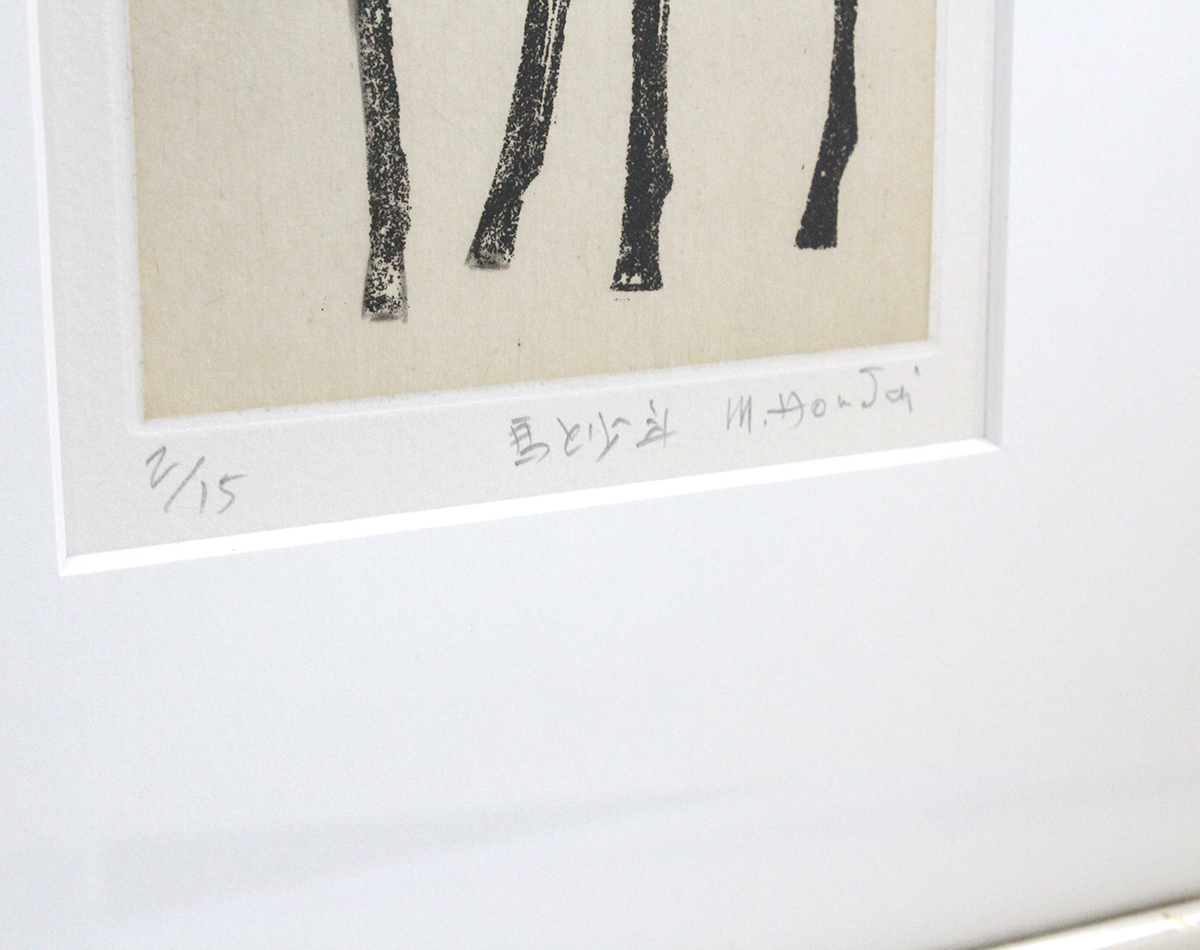 2/15 馬と少年 M.HonJoi